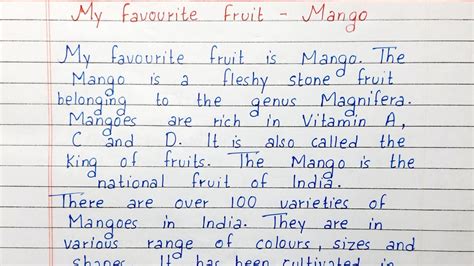 My favourite fruit - Mango
My favourite fruit is Mango. The
Mango is a fleshy stone fruit
belonging to the genus Magnifera.
Mangoes are rich in Vitamin A,
C and D. It is also called the
King of fruits. The Mango is the
national fruit of India.
There are over 100 varieties of
Mangoes in India. They are in
various range of colours, sizes and
shapes. It has been cultivated in